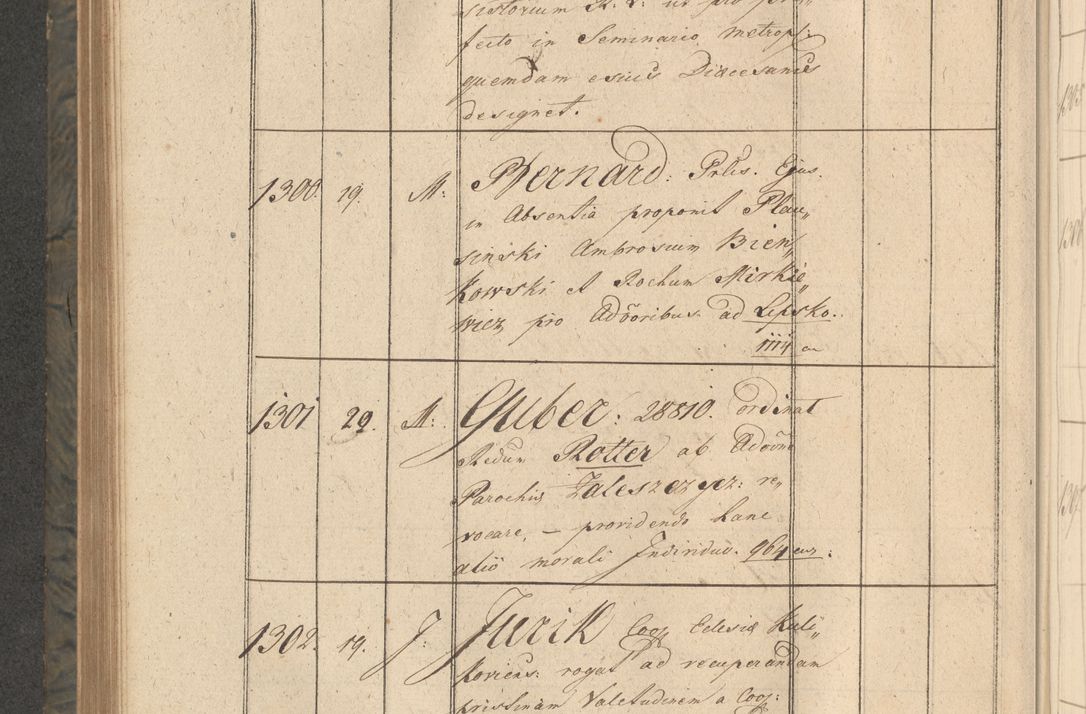 sistorium R. L: ut pro per,,
fecto in Seminario metropl:
quemdam esius Diaecesanus
designet.
1300. 19. M: Bernard: Prlis. Ejus.
in Absentia proponit Plau,,
sinski Ambrosium Bien,,
kowski et Rochum Mirkie,,
wicz, pro Adõoribus ad Lipsko.
1114 en
1301 29. M: Guber: 28810. ordinat
Redum Rotter ab Adõõne
Parochiæ Zaleszczycz: re,,
vocare, – providendo hanc
alio morali Individuo. 964 eur:
1302. 19. J: Jurik Coop Eclesiæ Kuli,,
koviens: rogat ad recuperandam
pristinam Valetudinem a Coop: